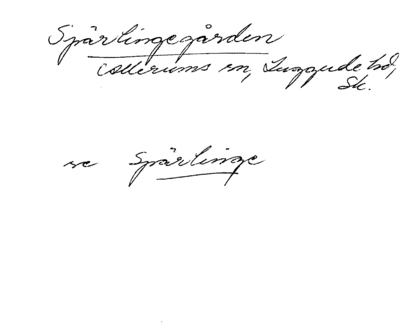 Spärlingegården
Allerums sn, Luggude hd,
Sk.
se Spärlinge